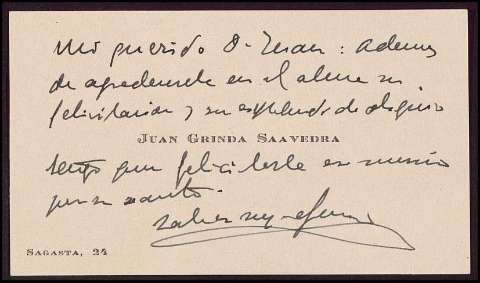 Mi querido D. Juan: Ademas
de agradecerle en el alma su
felicitacion y su esplendido obsequio
JUAN GRINDA SAAVEDRA
tengo que felicitarle
por su santo.
SAGASTA, 24